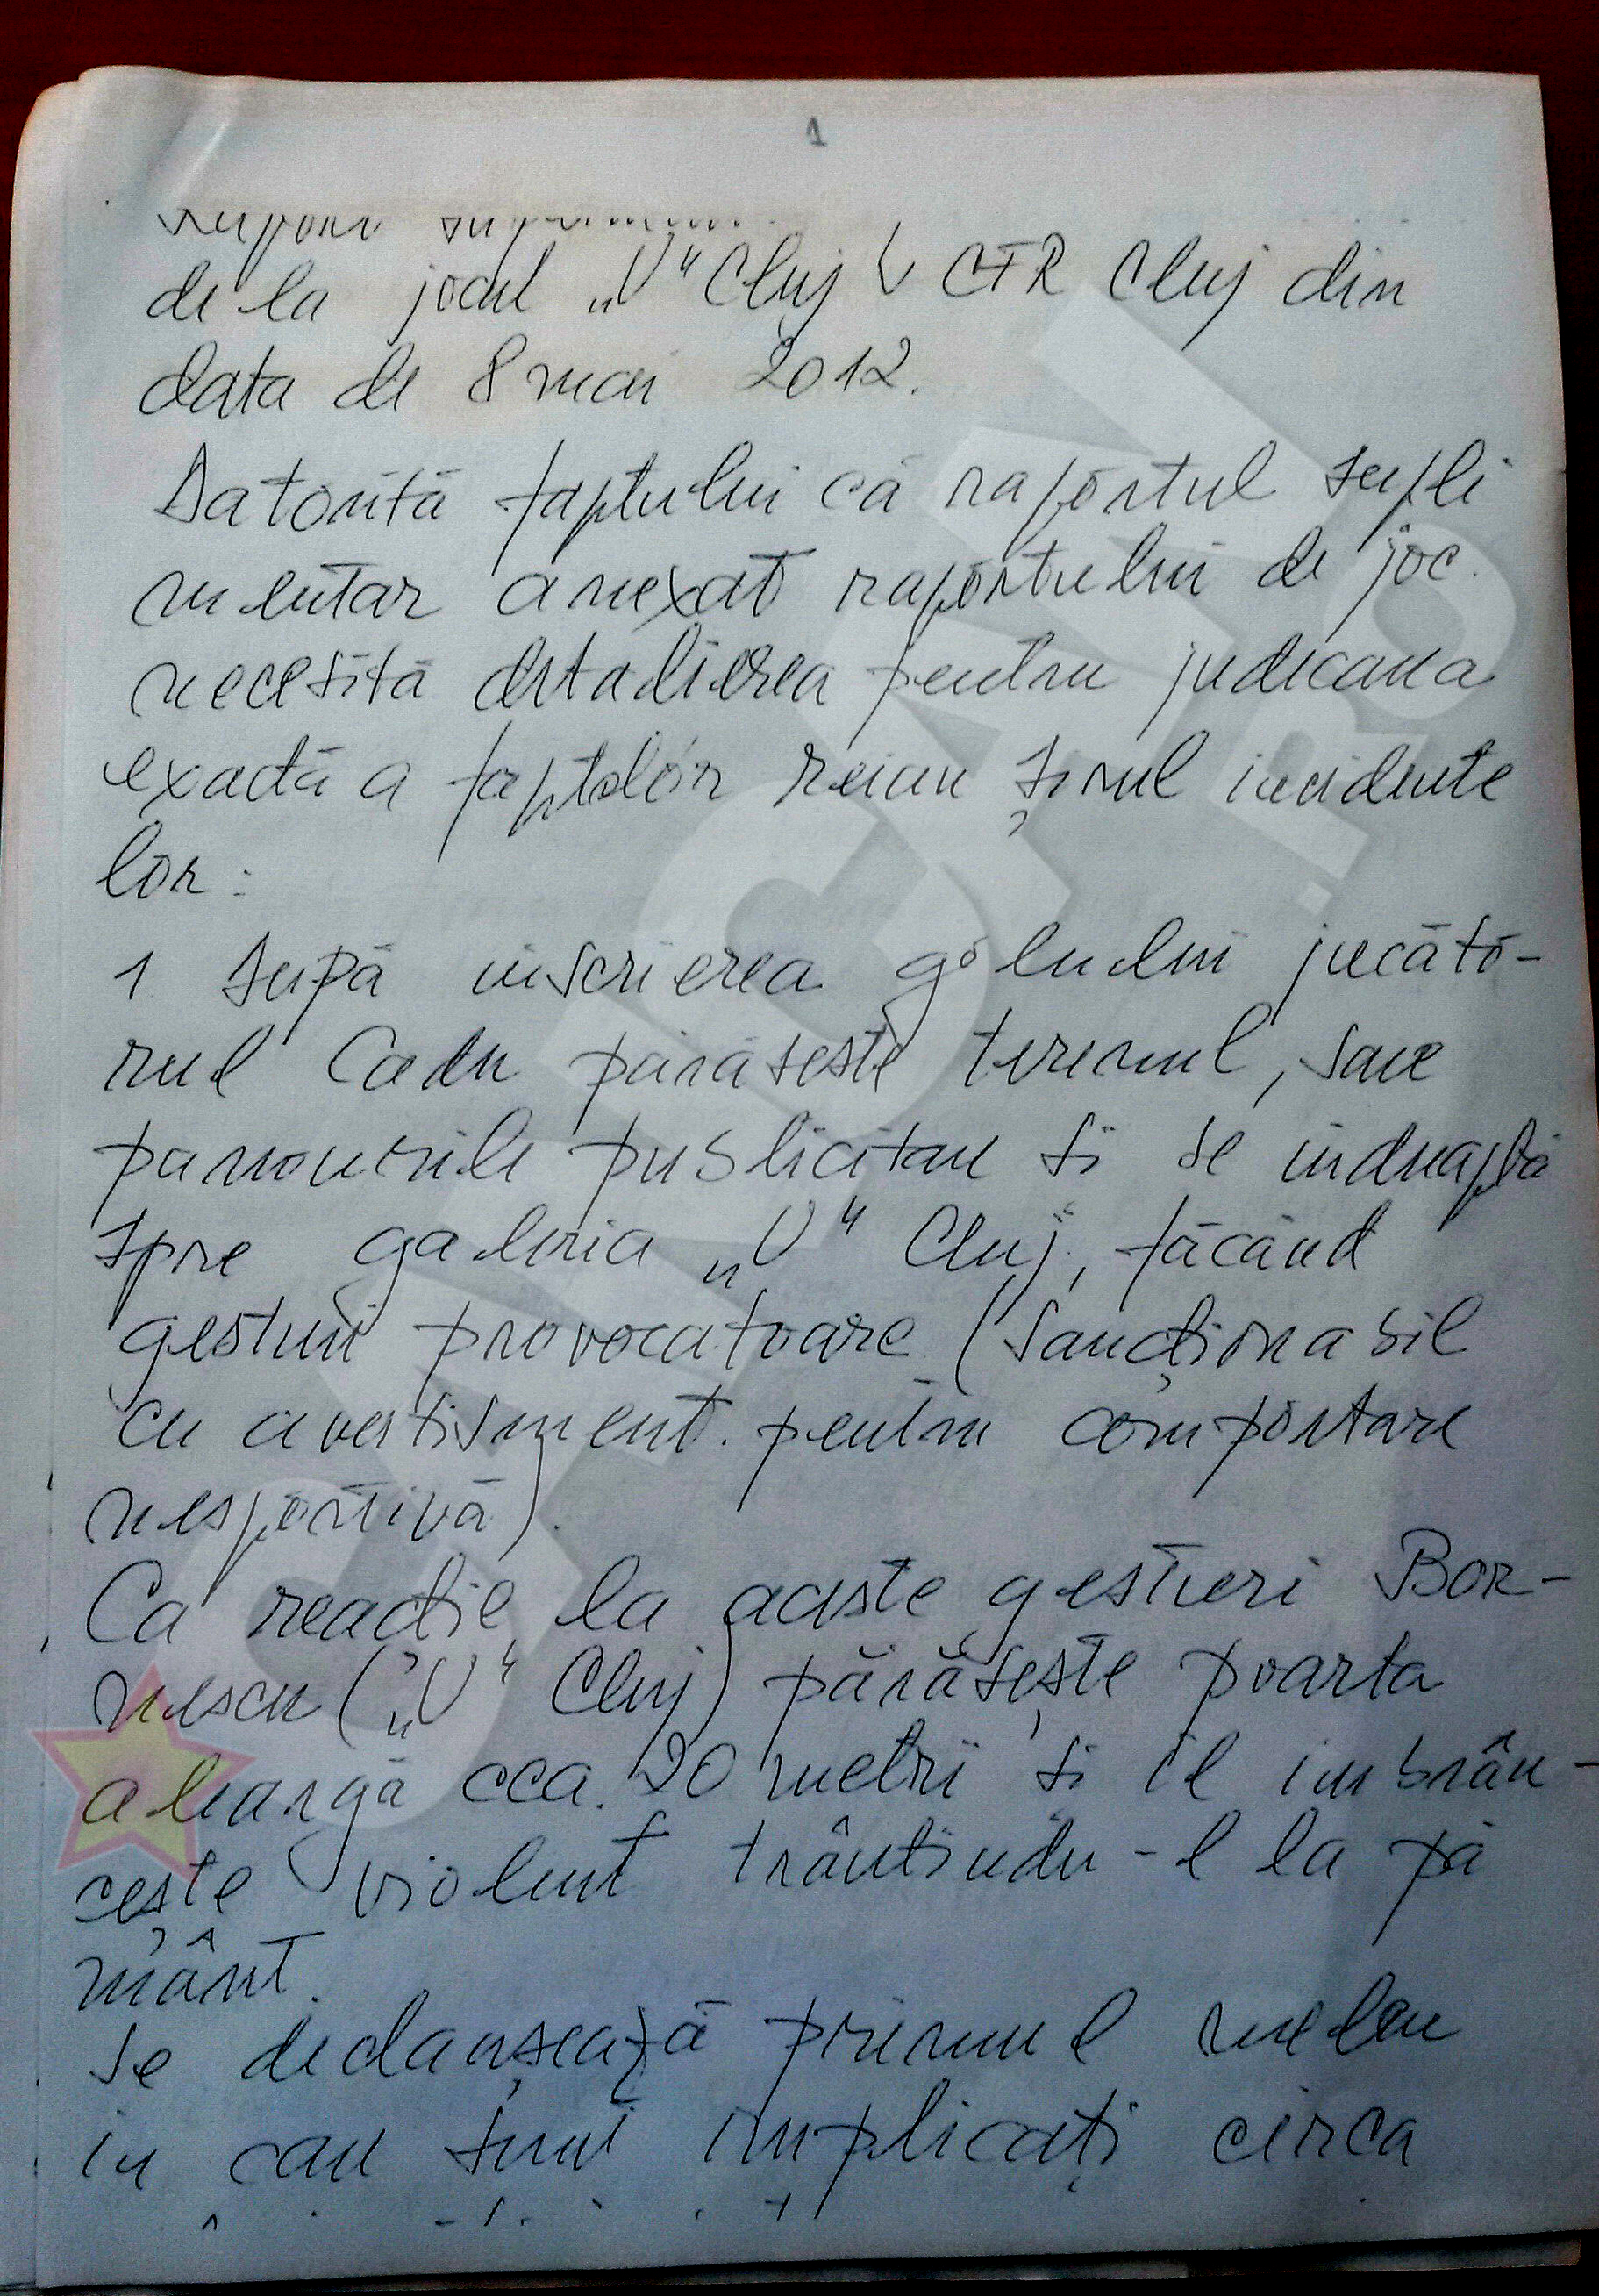 1
Raport
de la jocul „U" Cluj CFR Cluj din
data de 8 mai 2012.
Datorită faptului că raportul supli
mentar anexat raportului de joc
necesită detalierea pentru judecarea
exactă a faptelor reiau șirul incidente
lor:
1 După inscrierea golului jucăto-
rul Cadu părăsește terenul, sare
panourile publicitare si se indreaptă
spre galeria „U" Cluj, făcând
gesturi provocatoare (sancționabil
cu avertisment pentru comportare
nesportivă).
Ca reacție la aceste gesturi Bor-
nescu („U" Cluj) părăsește poarta
aleargă cca. 20 metri si il imbrân-
cește violent trântindu-l la pă
mânt.
Se declanșează primul meleu
in care sunt implicați circa
GSMCFM1
.RO